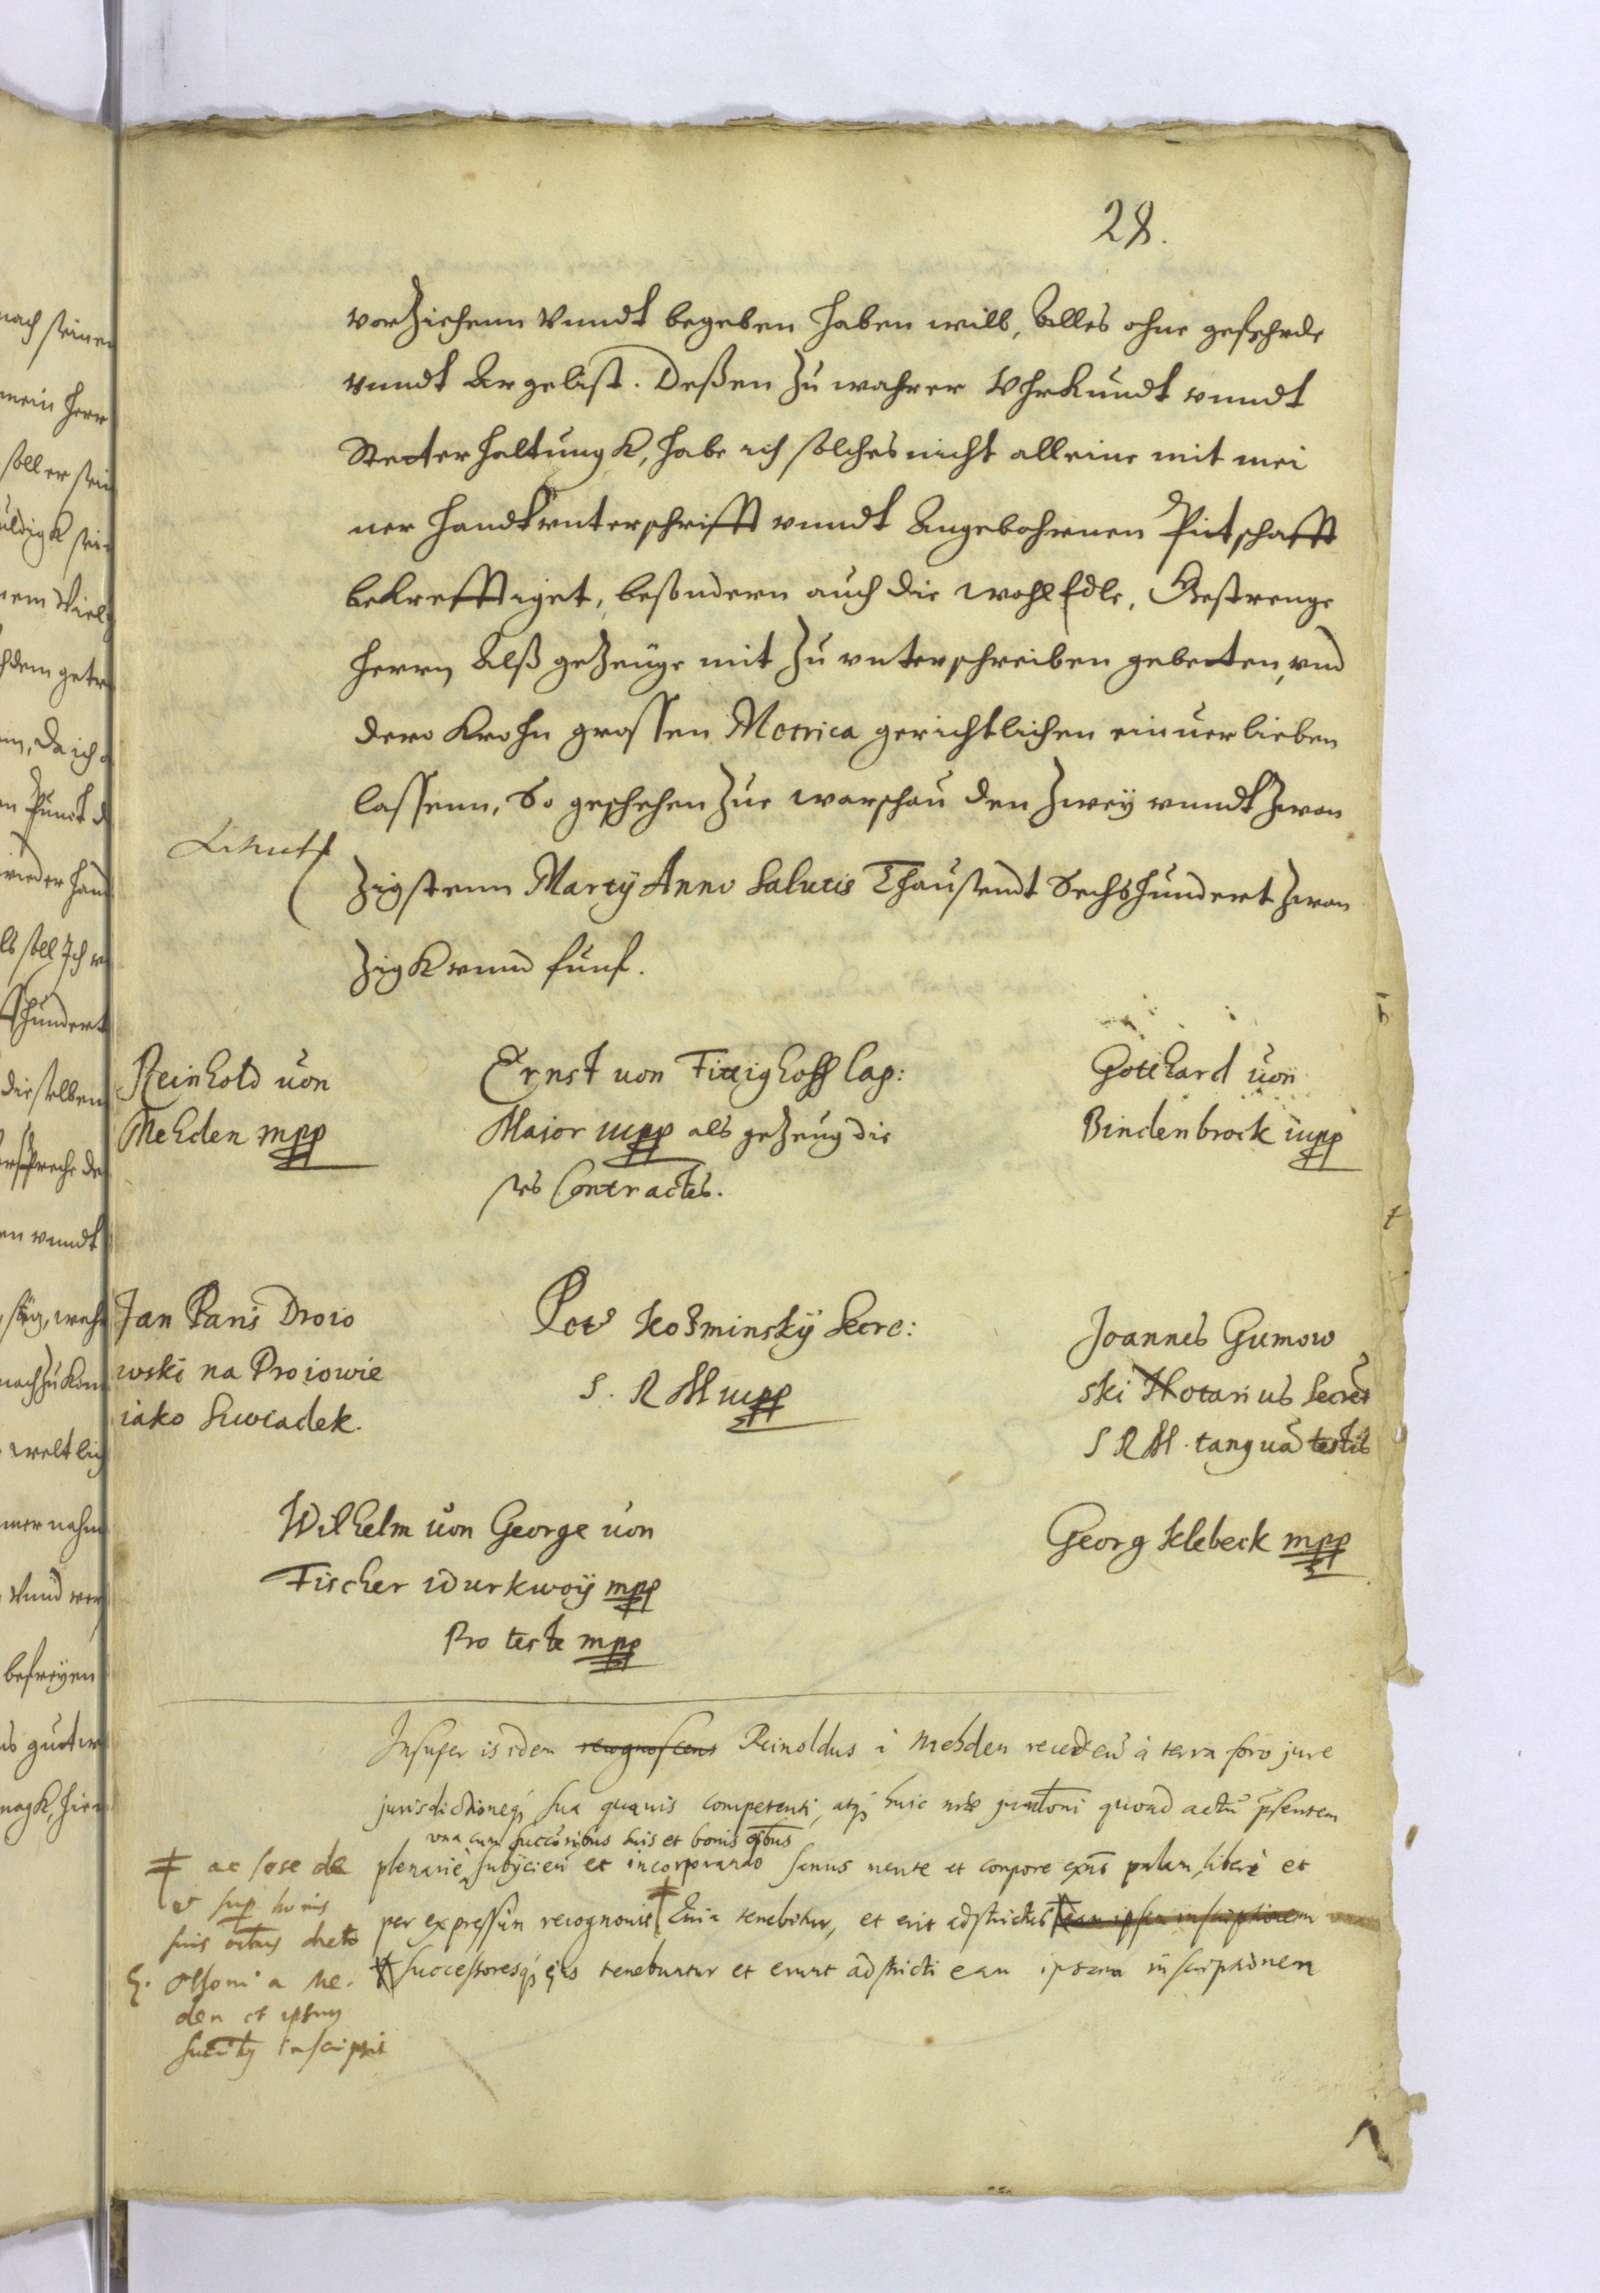 28.
vorziehenn vnndt begeben haben will, Alles ohne gefehrde
vnndt Argelist. Deßen zu wahrer Vhrkundt vnndt
Steeterhaltungk, habe ich solches nicht alleine mit mei
ner Handtvnterschrifft vnndt Angebohrnen Pitschafft
bekrefftiget, besondern auch die WohlEdle, Gestrenge
Herrn Alß gezeuge mit zu vnterschreiben gebeeten, vnd
dero Krohn grossen Metrica gerichtlichen einuerlieben
lassenn, So geschehen zue Warschau den zwey vnndt zwan
zigstenn Martÿ Anno Salutis Thausendt Sechshundert zwan
zigk vnnd fünf.
Reinhold von
Mehden mpp
Ernst von Fittighoff Cap:
Maior mpp als gezeug die
ses Contractes.
Gotthard von
Bindenbrock mpp
Jan Paris Droio
wski na Droiowie
iako Swiadek.
Kosminskÿ Secre:
S. R M mpp
Joannes Gumow
ski Notarius Secret
S R M. tanquã testis
Wilhelm von George von
Fischer mpp
Pro teste mpp
Georg Klebeck mpp
Insuper is idem recognoscens Reinoldus à Mehden recedeñ à terra foro jure
jurisdictioneq₃ sua quauis competenti, atq₃ huic quoad actũ pñsentem
vna cum successoribus suis et bonis oĩbus
plenariè subijcieñ et incorporando sanus mente et corpore exñs palam, liberè et
per expressũm recognouit tenebitur, et erit adstrictus eam ipsam inscriptionem
successoresq₃ eius tenebuntur et erunt adstricti eam ipsam inscriptionem
ac sese de
et sup bonis
suis
Ottoni a Me.
den et ipsius
inscripsit